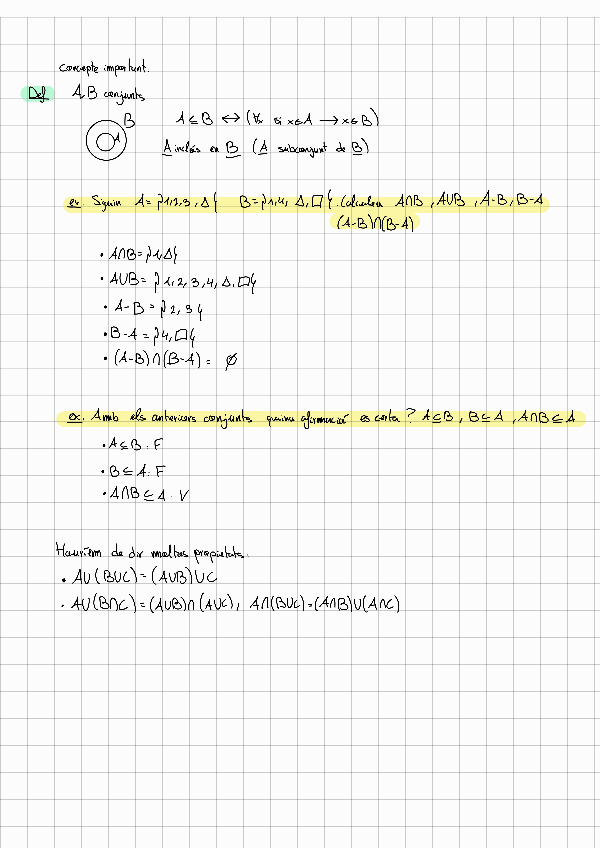 Concepte important.
Def A, B conjunts
B A
A ⊆ B ↔ (∀x si x∈A → x∈B)
A inclòs en B (A subconjunt de B)
ex. Siguin A = {1,2,3, Δ} B = {1,4, Δ, □}. Calculem A∩B, A∪B, A-B, B-A
(A-B)∩(B-A)
• A∩B = {1,Δ}
• A∪B = {1, 2, 3, 4, Δ, □}
• A-B = {2, 3}
• B-A = {4, □}
• (A-B)∩(B-A) = ∅
ex. Amb els anteriors conjunts quina afirmació es certa? A⊆B, B⊆A, A∩B ⊆ A
• A⊆B. F
• B⊆A. F
• A∩B ⊆ A. V
Hauríem de dir moltes propietats.
• A∪(B∪C) = (A∪B)∪C
• A∪(B∩C) = (A∪B)∩(A∪C), A∩(B∪C) = (A∩B)∪(A∩C)